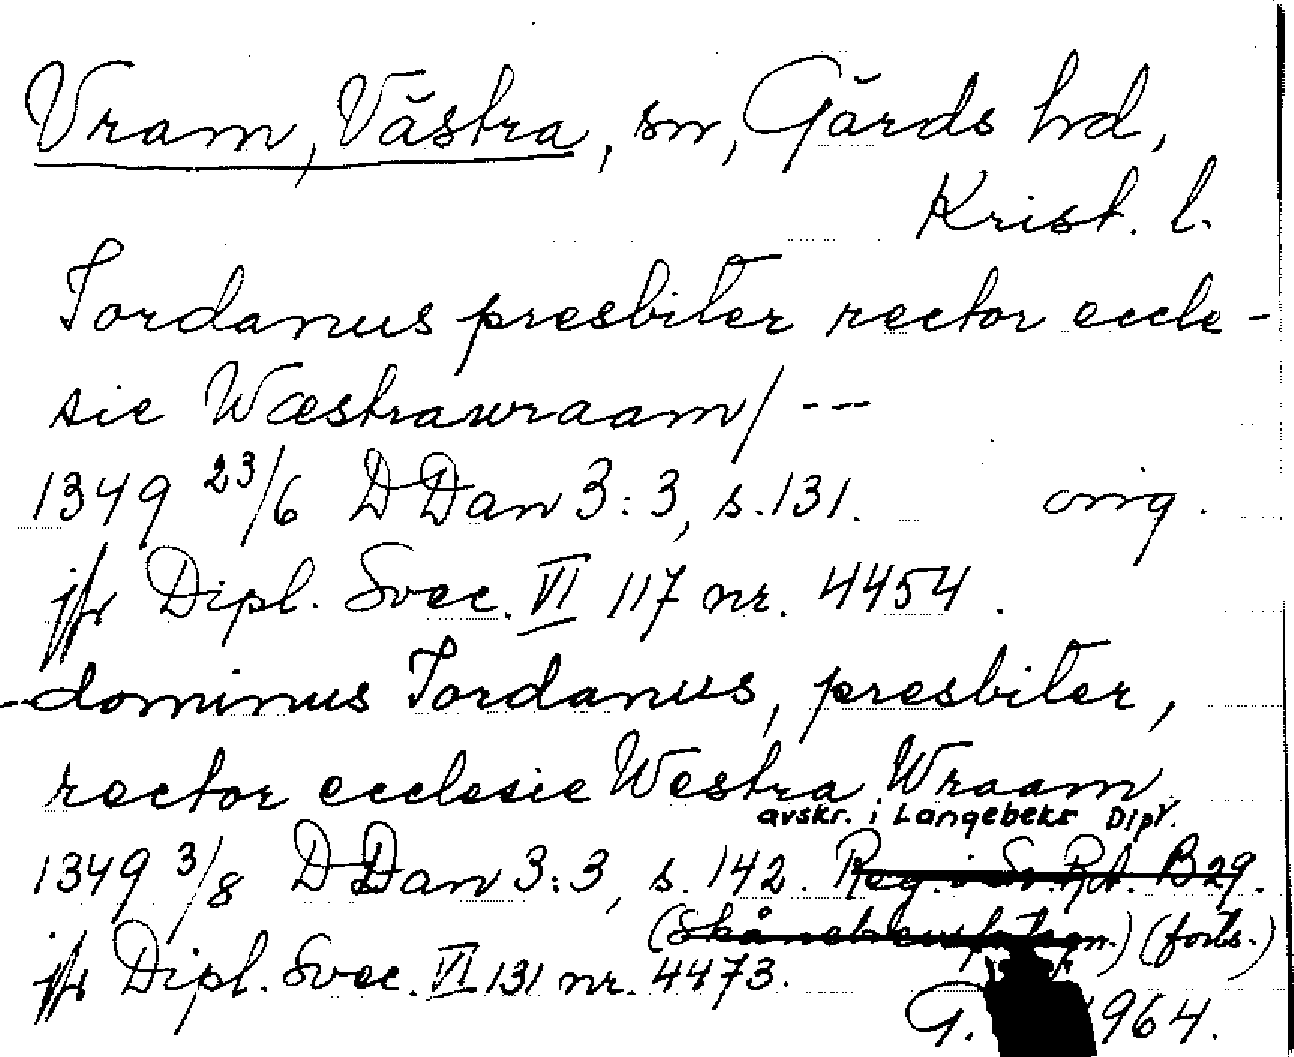 Vram, Västra, sn, Gärds hd,
Krist. l.
Iordanus presbiter rector eccle-
sie Wæstrawraam/ --
1349 23/6 DDan 3:3, s. 131. orig.
jfr Dipl. Svec. VI 117 nr. 4454.
dominus Iordanus, presbiter,
rector ecclesie Westra Wraam
avskr. i Langebeks Dipl.
1349 3/8 DDan 3:3, s. 142. Reg. i Sv. RA. B29.
(forts.)
jfr Dipl. Svec. VI 131 nr. 4473.
G. 1964.